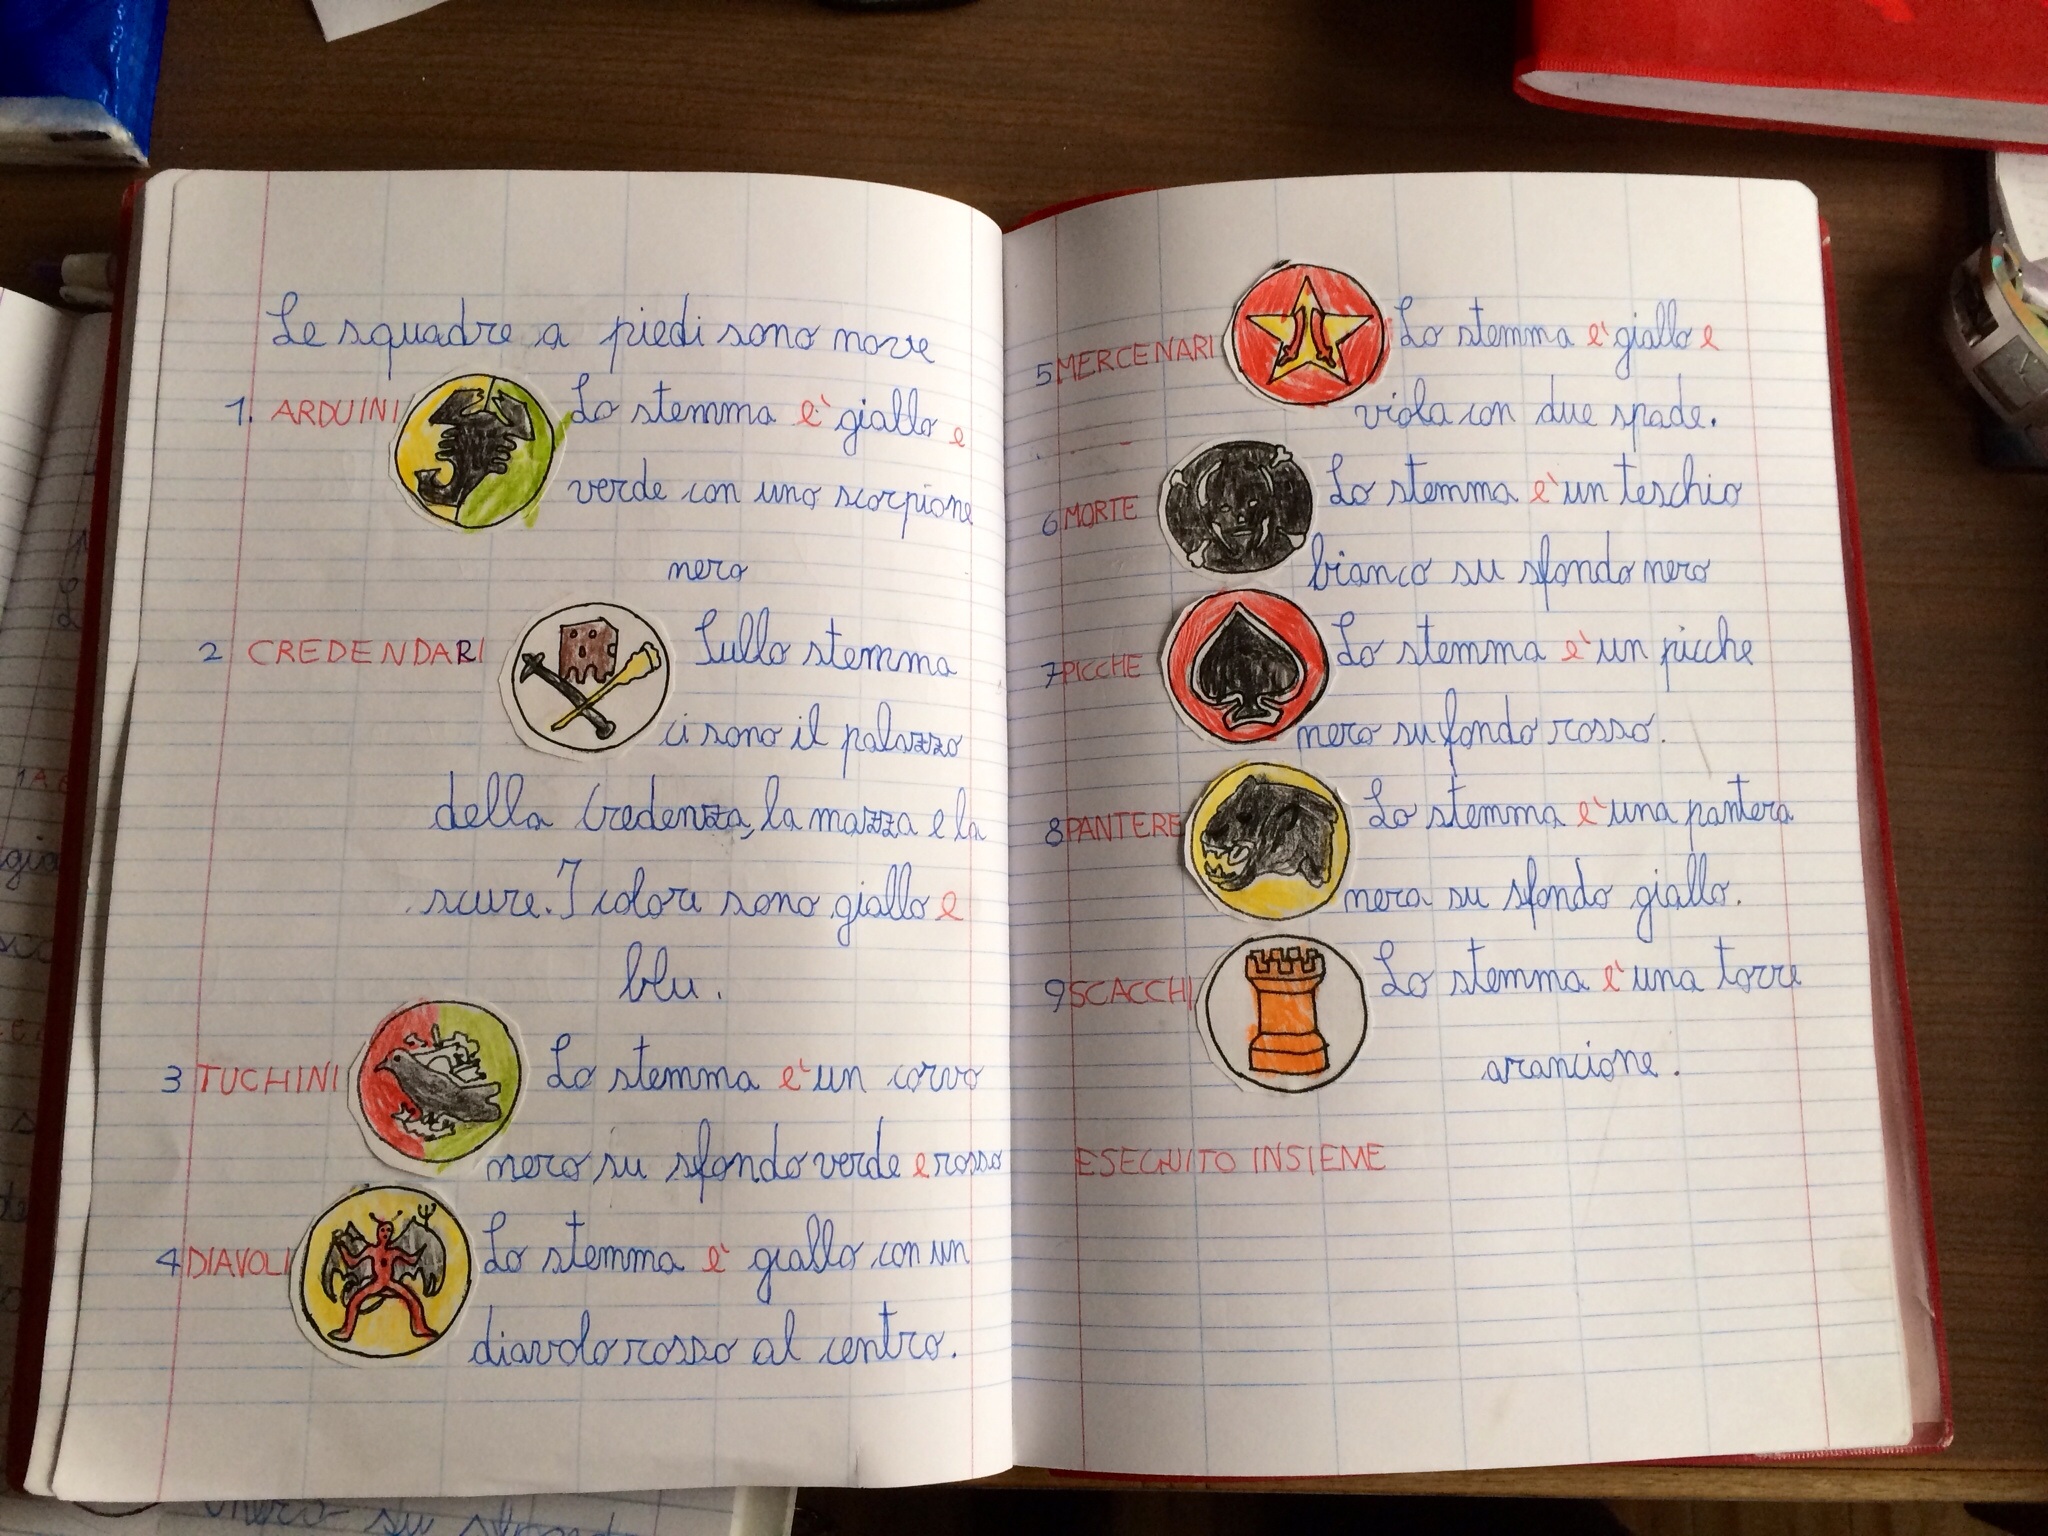 Le squadre a piedi sono nove
1. ARDUINI Lo stemma è giallo e
verde con uno scorpione
nero
2 CREDENDARI Sullo stemma
ci sono il palazzo
della Credenza, la mazza e la
scure. I colori sono giallo e
blu.
3 TUCHINI Lo stemma è un corvo
nero su sfondo verde e rosso
4 DIAVOLI Lo stemma è giallo con un
diavolo rosso al centro.
5 MERCENARI Lo stemma è giallo e
viola con due spade.
6 MORTE Lo stemma è un teschio
bianco su sfondo nero
7 PICCHE Lo stemma è un picche
nero su fondo rosso.
8 PANTERE Lo stemma è una pantera
nera su sfondo giallo.
9 SCACCHI Lo stemma è una torre
arancione.
ESEGUITO INSIEME
su